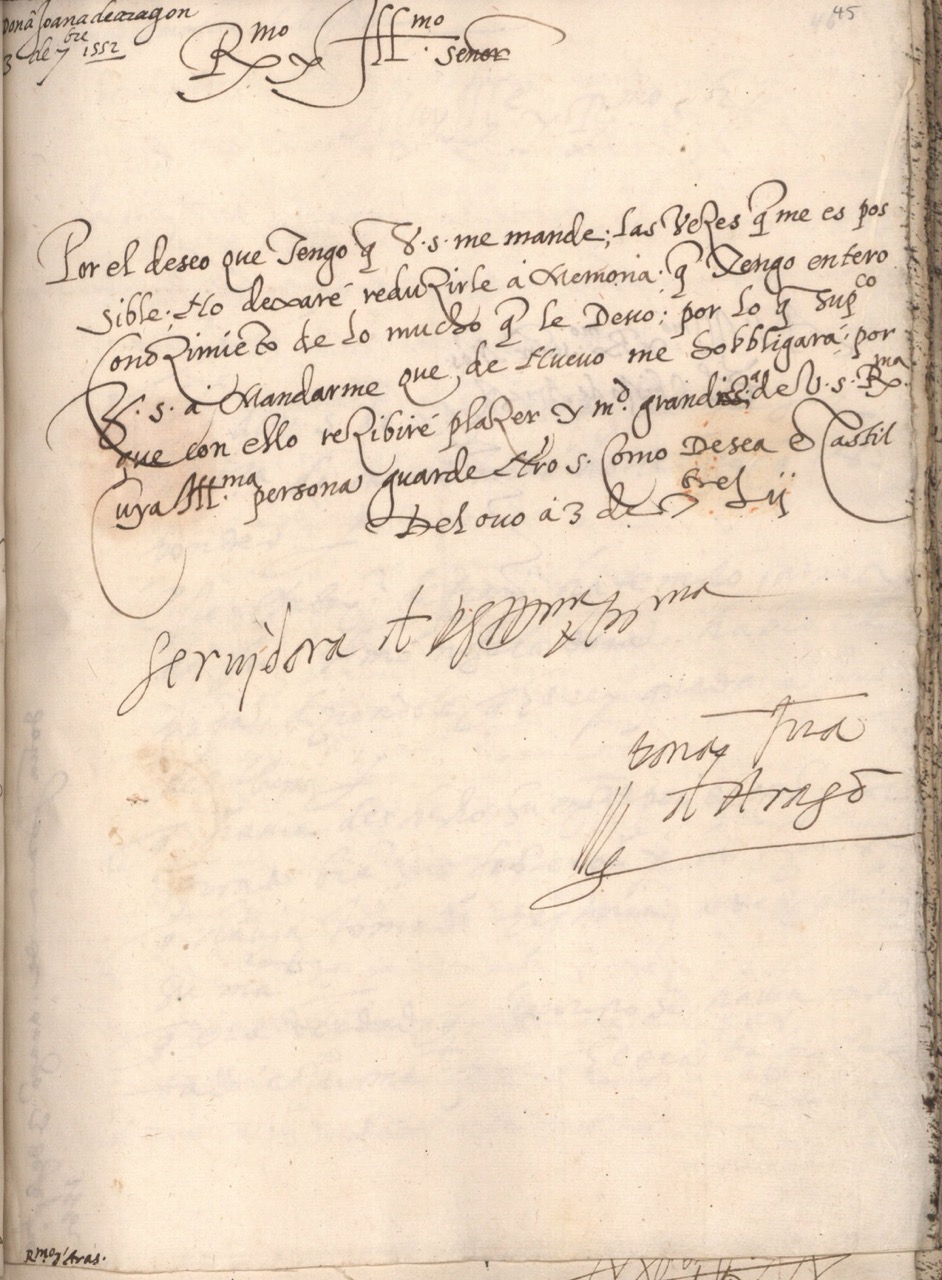 Doña Joana de aragon
3 de 7bre 1552
45
Rmo y Illmo señor
Por el deseo que Tengo q̃ V. s. me mande; las vezes q̃ me es pos
sible; No dexaré reduzirle á Memoria; q̃ Tengo entero
Conozimiẽto de lo mucho q̃ le Devo; por lo q̃ Supco
V. s. á Mandarme que, de Nuevo me hobbligará; por
que con ello rezibiré plazer y md. grandis.a de V. s. Rma
cuya Illma persona guarde Nro s. Como Desea ẽ Castil
Del ovo á 3 de 7bre Lij
servidora
dona Jua
d Aragõ
Rmo